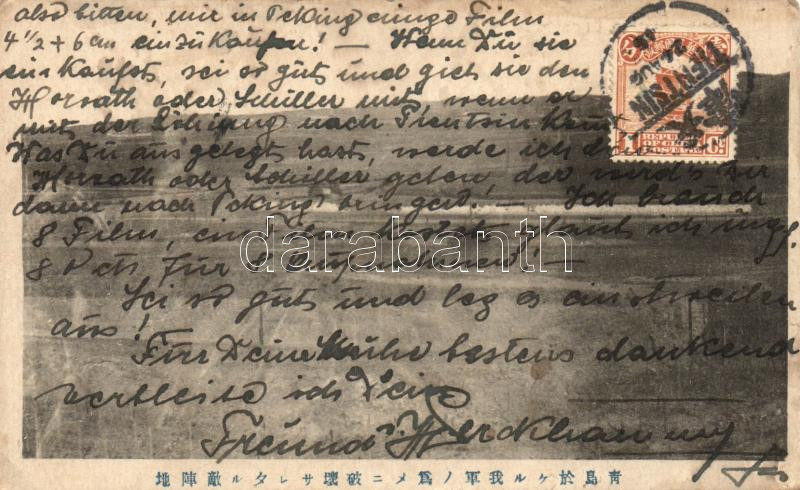 also bitten, mir in Peking einge Film
4 1/2 + 6 cm einzukaufen! — Wenn Du sie
einkaufst, sei so gut und gieb sie den
Horvath oder Schiller mit, wenn er
mit der Löhnung nach Tientsin
Was Du ausgelegt hast, werde ich
Horvath oder Schiller geben der wird's Dir
dann nach Peking bringen! — Ich brauch
8 Film, ein kostet glaub ich
80 cts für Aufnahmen! —
Sei so gut und leg es einstweilen
aus!
Für Deine Mühe bestens dankend
verbleibe ich Dein
Freund
TIENTSIN
REPUBLIC
OF CHINA
POSTAGE
1 Ct
darabanth
青島於ケル我軍ノ爲メニ破壞サレタル敵陣地